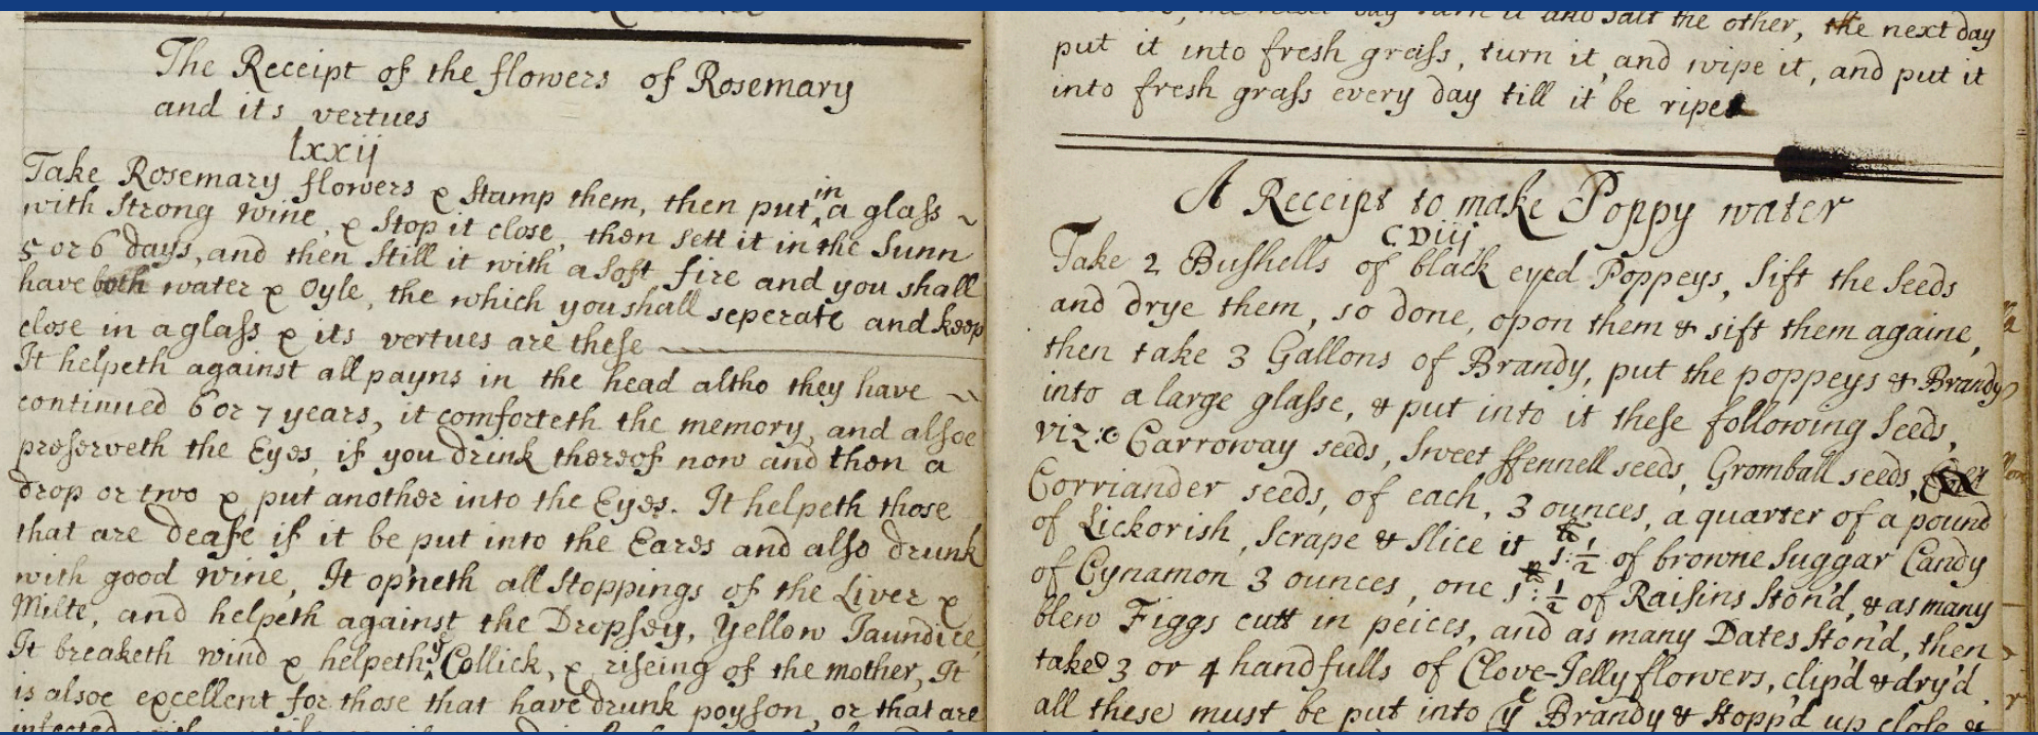 The Receipt of the flowers of Rosemary
and its vertues
lxxij
Take Rosemary flowers & stamp them, then put in a glass
with strong wine, & stop it close, then sett it in the Sunn
5 or 6 days, and then still it with a soft fire and you shall
have both water & Oyle, the which you shall seperate and keep
close in a glass & its vertues are these
It helpeth against all payns in the head altho they have
continued 6 or 7 years, it comforteth the memory, and alsoe
preserveth the Eyes, if you drink thereof now and then a
drop or two & put another into the Eyes. It helpeth those
that are deafe if it be put into the Eares and also drunk
with good wine, It op'neth all stoppings of the Liver &
Milte, and helpeth against the Dropsey, Yellow Jaundice,
It breaketh wind & helpeth ye Collick, & riseing of the mother, It
is alsoe excellent for those that have drunk poyson, or that are
infected
turn it and salt the other, the next day
put it into fresh grass, turn it, and wipe it, and put it
into fresh grass every day till it be ripe
A Receipt to make Poppy water
CDiij
Take 2 Bushells of black eyed Poppeys, sift the seeds
and drye them, so done, opon them & sift them againe,
then take 3 Gallons of Brandy, put the poppeys & Brandy
into a large glasse, & put into it these following seeds,
viz: Carroway seeds, Sweet ffennell seeds, Gromball seeds,
Corriander seeds, of each, 3 ounces, a quarter of a pound
of Lickorish, scrape & slice it 1/2 of browne Suggar Candy
of Cynamon 3 ounces, one 1/2 of Raisins Ston'd, & as many
blew Figgs cutt in peices, and as many Dates Ston'd, then
take 3 or 4 handfulls of Clove-Jelly flowers, clip'd & dry'd
all these must be put into ye Brandy & stopp'd up close &